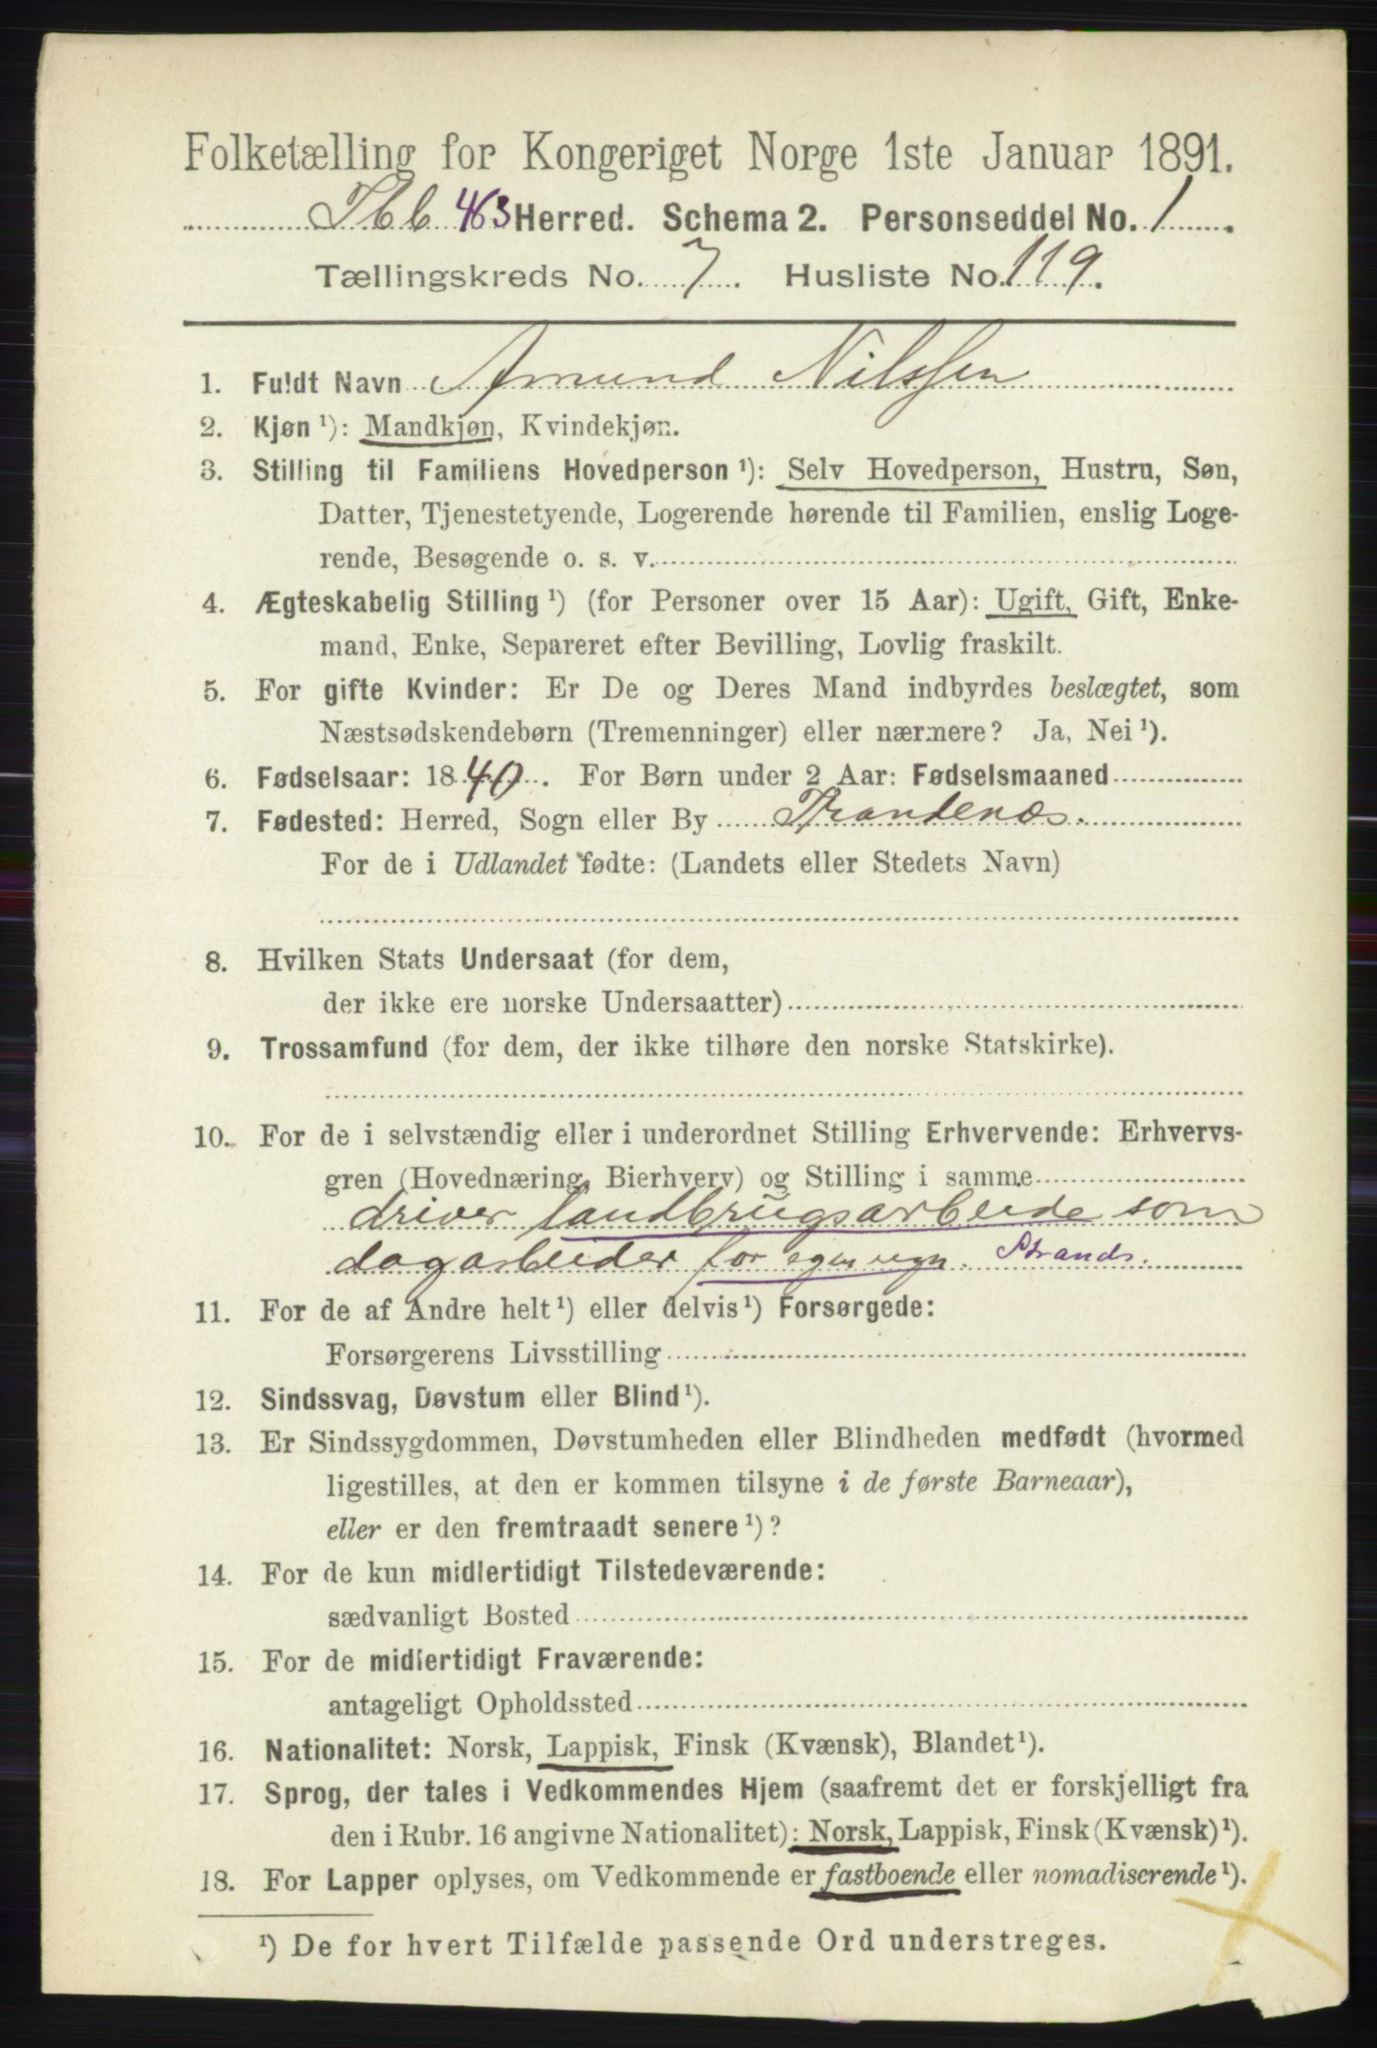 Folketælling for Kongeriget Norge 1ste Januar 1891.
463 Herred. Schema 2. Personseddel No. 1.
Tællingskreds No. 7. Husliste No. 119.
1. Fuldt Navn Amund Nilssen
2. Kjøn ¹): Mandkjøn, Kvindekjøn.
3. Stilling til Familiens Hovedperson ¹): Selv Hovedperson, Hustru, Søn,
Datter, Tjenestetyende, Logerende hørende til Familien, enslig Loge-
rende, Besøgende o. s. v.
4. Ægteskabelig Stilling ¹) (for Personer over 15 Aar): Ugift, Gift, Enke-
mand, Enke, Separeret efter Bevilling, Lovlig fraskilt.
5. For gifte Kvinder: Er De og Deres Mand indbyrdes beslægtet, som
Næstsødskendebørn (Tremenninger) eller nærmere? Ja, Nei ¹).
6. Fødselsaar: 1840. For Børn under 2 Aar: Fødselsmaaned
7. Fødested: Herred, Sogn eller By Trondenæs.
For de i Udlandet fødte: (Landets eller Stedets Navn)
8. Hvilken Stats Undersaat (for dem,
der ikke ere norske Undersaatter)
9. Trossamfund (for dem, der ikke tilhøre den norske Statskirke).
10. For de i selvstændig eller i underordnet Stilling Erhvervende: Erhvervs-
gren (Hovednæring, Bierhverv) og Stilling i samme
driver landbrugsarbeide som
dagarbeider for egen regn. Strands.
11. For de af Andre helt ¹) eller delvis ¹) Forsørgede:
Forsørgerens Livsstilling
12. Sindssvag, Døvstum eller Blind ¹).
13. Er Sindssygdommen, Døvstumheden eller Blindheden medfødt (hvormed
ligestilles, at den er kommen tilsyne i de første Barneaar),
eller er den fremtraadt senere ¹)?
14. For de kun midlertidigt Tilstedeværende:
sædvanligt Bosted
15. For de midlertidigt Fraværende:
antageligt Opholdssted
16. Nationalitet: Norsk, Lappisk, Finsk (Kvænsk), Blandet ¹).
17. Sprog, der tales i Vedkommendes Hjem (saafremt det er forskjelligt fra
den i Rubr. 16 angivne Nationalitet): Norsk, Lappisk, Finsk (Kvænsk) ¹).
18. For Lapper oplyses, om Vedkommende er fastboende eller nomadiserende ¹).
¹) De for hvert Tilfælde passende Ord understreges.